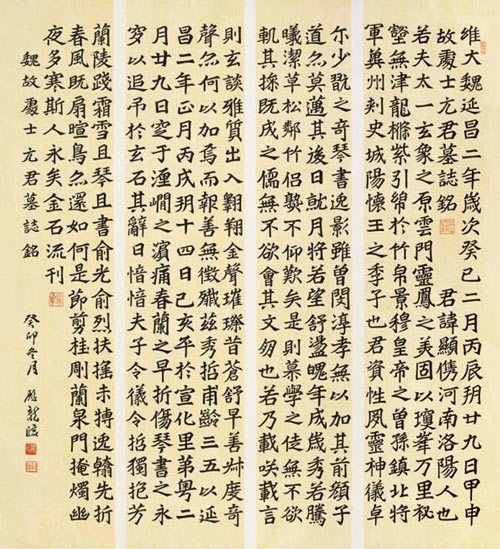 維大魏延昌二年歲次癸巳二月丙辰朔廿九日甲申
故處士元君墓誌銘 君諱顯儁河南洛陽人也
若夫太一玄象之原雲門靈鳳之美固以瓊峯万里秘
壑無津龍櫛紫引蔕於竹泉景穆皇帝之曾孫鎮北將
軍冀州刾史城陽懷王之季子也君資性夙靈神儀卓
尒少翫之奇琴書逸影雖曾閔淳孝無以加其前顏子
道亦莫邁其後日就月將若望舒盪魄年成歲秀若騰
曦潔草松鄰竹侶孰不仰歎矣是則慕學之徒無不欲
軌其操既成之儒無不欲會其文匆也若乃載咲載言
則玄談雅質出入翱翔金聲璀璨昔蒼舒早善叔度奇
聲亦何以加焉而報善無徵殲茲秀哲甫齡三五以延
昌二年正月丙戌朔十四日己亥卒於宣化里第粤二
月廿九日窆于瀍澗之濱痛春蘭之早折傷琴書之永
穸以追吊於玄石其辭曰愔愔夫子令儀令哲獨挹芳
蘭陵踐霜雪且琴且書俞光俞烈扶搖未搏逸翰先折
春風既扇暄鳥亦還如何是節剪桂剛蘭泉門掩燭幽
夜多寒斯人永矣金石流刊
魏故處士元君墓誌銘
癸卯冬月 龍